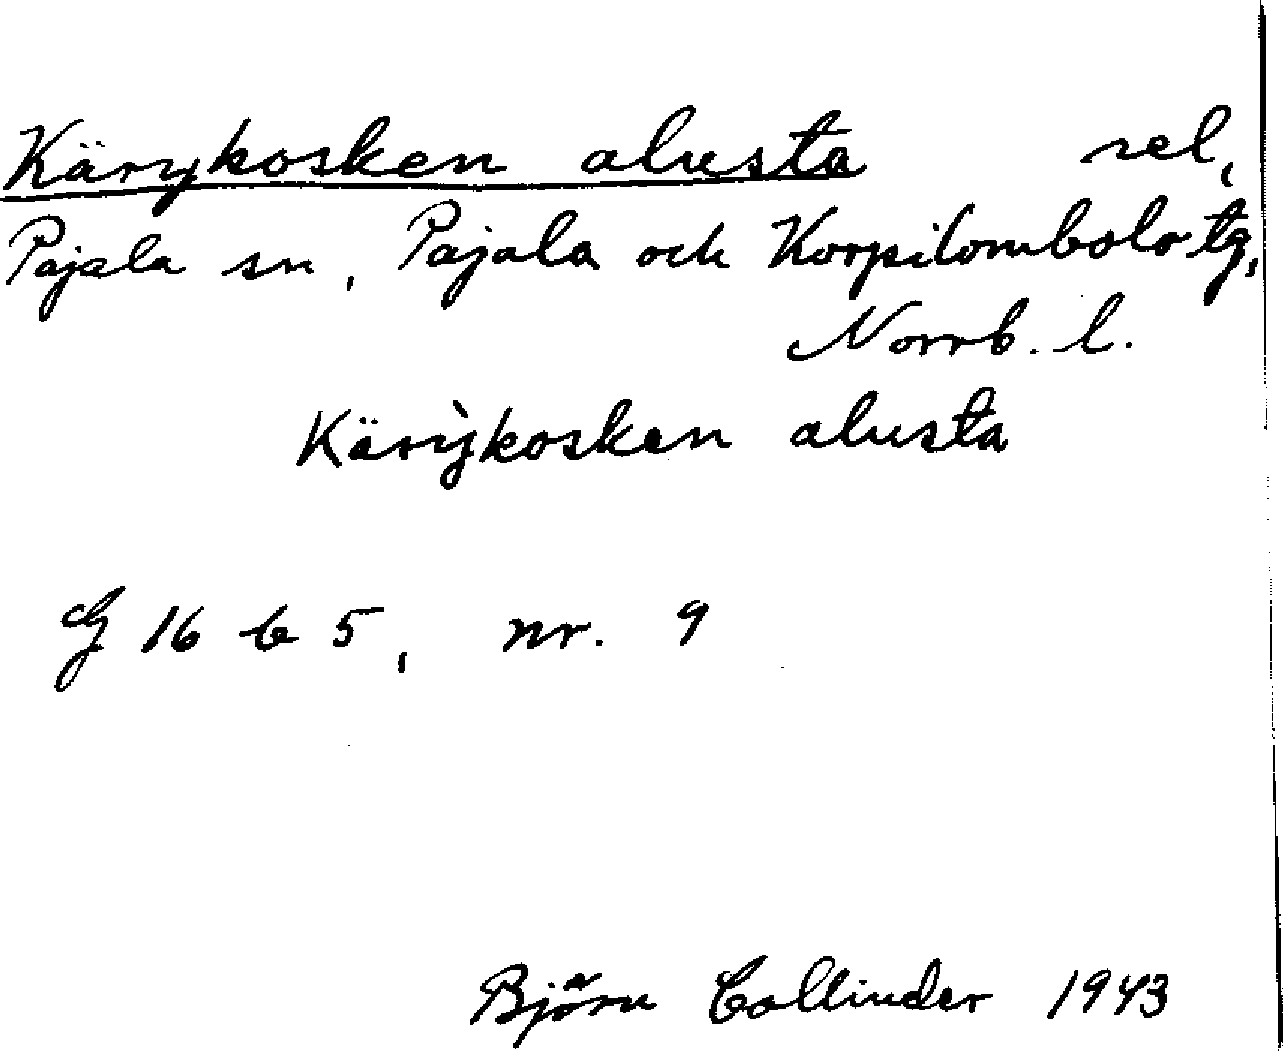 Kärykosken alusta sel,
Pajala sn, Pajala och Korpilombolo tg,
Norrb. l.
Kärỳkosken alusta
G 16 b 5, nr. 9
Björn Collinder 1943